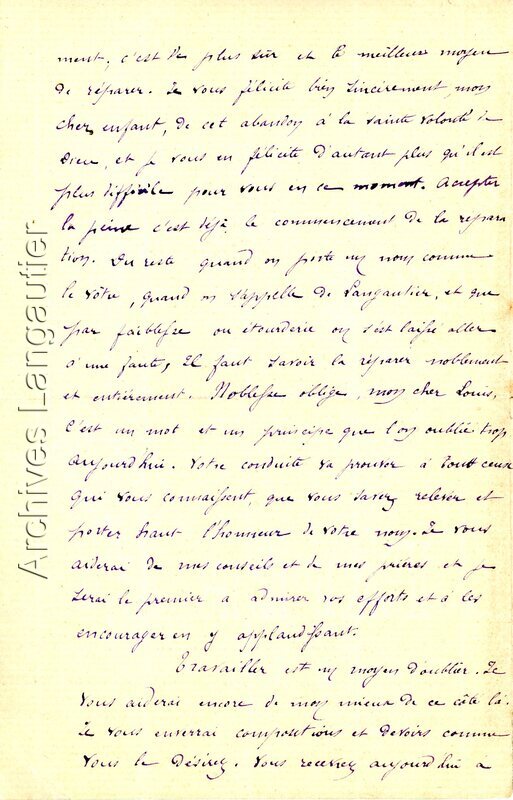 ment, c'est le plus sûr et le meilleur moyen
de réparer. Je vous félicite bien sincèrement, mon
cher enfant, de cet abandon à la sainte volonté de
Dieu, et je vous en félicite d'autant plus qu'il est
plus difficile pour vous en ce moment. Accepter
la peine c'est déjà le commencement de la répara
tion. Du reste quand on porte un nom comme
le vôtre, quand on s'appelle de Langautier, et que
par faiblesse ou étourderie on s'est laissé aller
à une faute, il faut savoir la réparer noblement
et entièrement. Noblesse oblige, mon cher Louis,
C'est un mot et un principe que l'on oublie trop
aujourd'hui. Votre conduite va prouver à tout ceux
qui vous connaissent, que vous savez relever et
porter haut l'honneur de votre nom. Je vous
aiderai de mes conseils et de mes prières et je
serai le premier a admirer vos efforts et à les
encourager en y applaudissant.
Travailler est un moyen d'oublier. Je
vous aiderai encore de mon mieux de ce côté là.
Je vous enverrai compositions et devoirs comme
vous le désirez. Vous recevrez aujourd'hui a
Archives Langautier